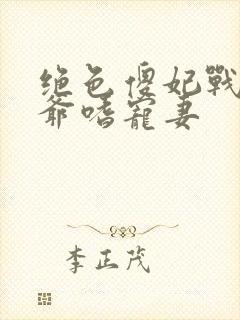 绝色傻妃戰
爺嗜寵妻
李正茂